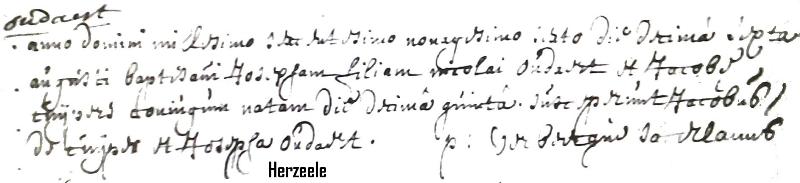 oudaert
anno domini millesimo sexcentesimo nonagesimo sexto die decimâ sexta
augusti baptisavi Josepham filiam nicolai oudaert et Jacobe
cuypers coniugum natam die decimâ quintâ. susceperunt Jacobus
de cuyper et Josepha oudaert. p:
Herzeele